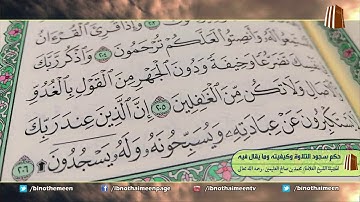 وَإِذَا قُرِئَ ٱلْقُرْءَانُ
وَأَنصِتُوا۟ لَعَلَّكُمْ تُرْحَمُونَ ٢٠٤ وَٱذْكُر رَّبَّكَ
تَضَرُّعًا وَخِيفَةً وَدُونَ ٱلْجَهْرِ مِنَ ٱلْقَوْلِ بِٱلْغُدُوِّ
وَلَا تَكُن مِّنَ ٱلْغَٰفِلِينَ ٢٠٥ إِنَّ ٱلَّذِينَ عِندَ رَبِّكَ
عَنْ عِبَادَتِهِۦ وَيُسَبِّحُونَهُۥ وَلَهُۥ يَسْجُدُونَ ۩ ٢٠٦
حكم سجود التلاوة وكيفيته، وما يقال فيه
لفضيلة الشيخ العلامة محمد بن صالح العثيمين - رحمه الله تعالى
/ibnothaimeen /ibnothaimeenpage /ibnothaimeentv /ibnothaimeen